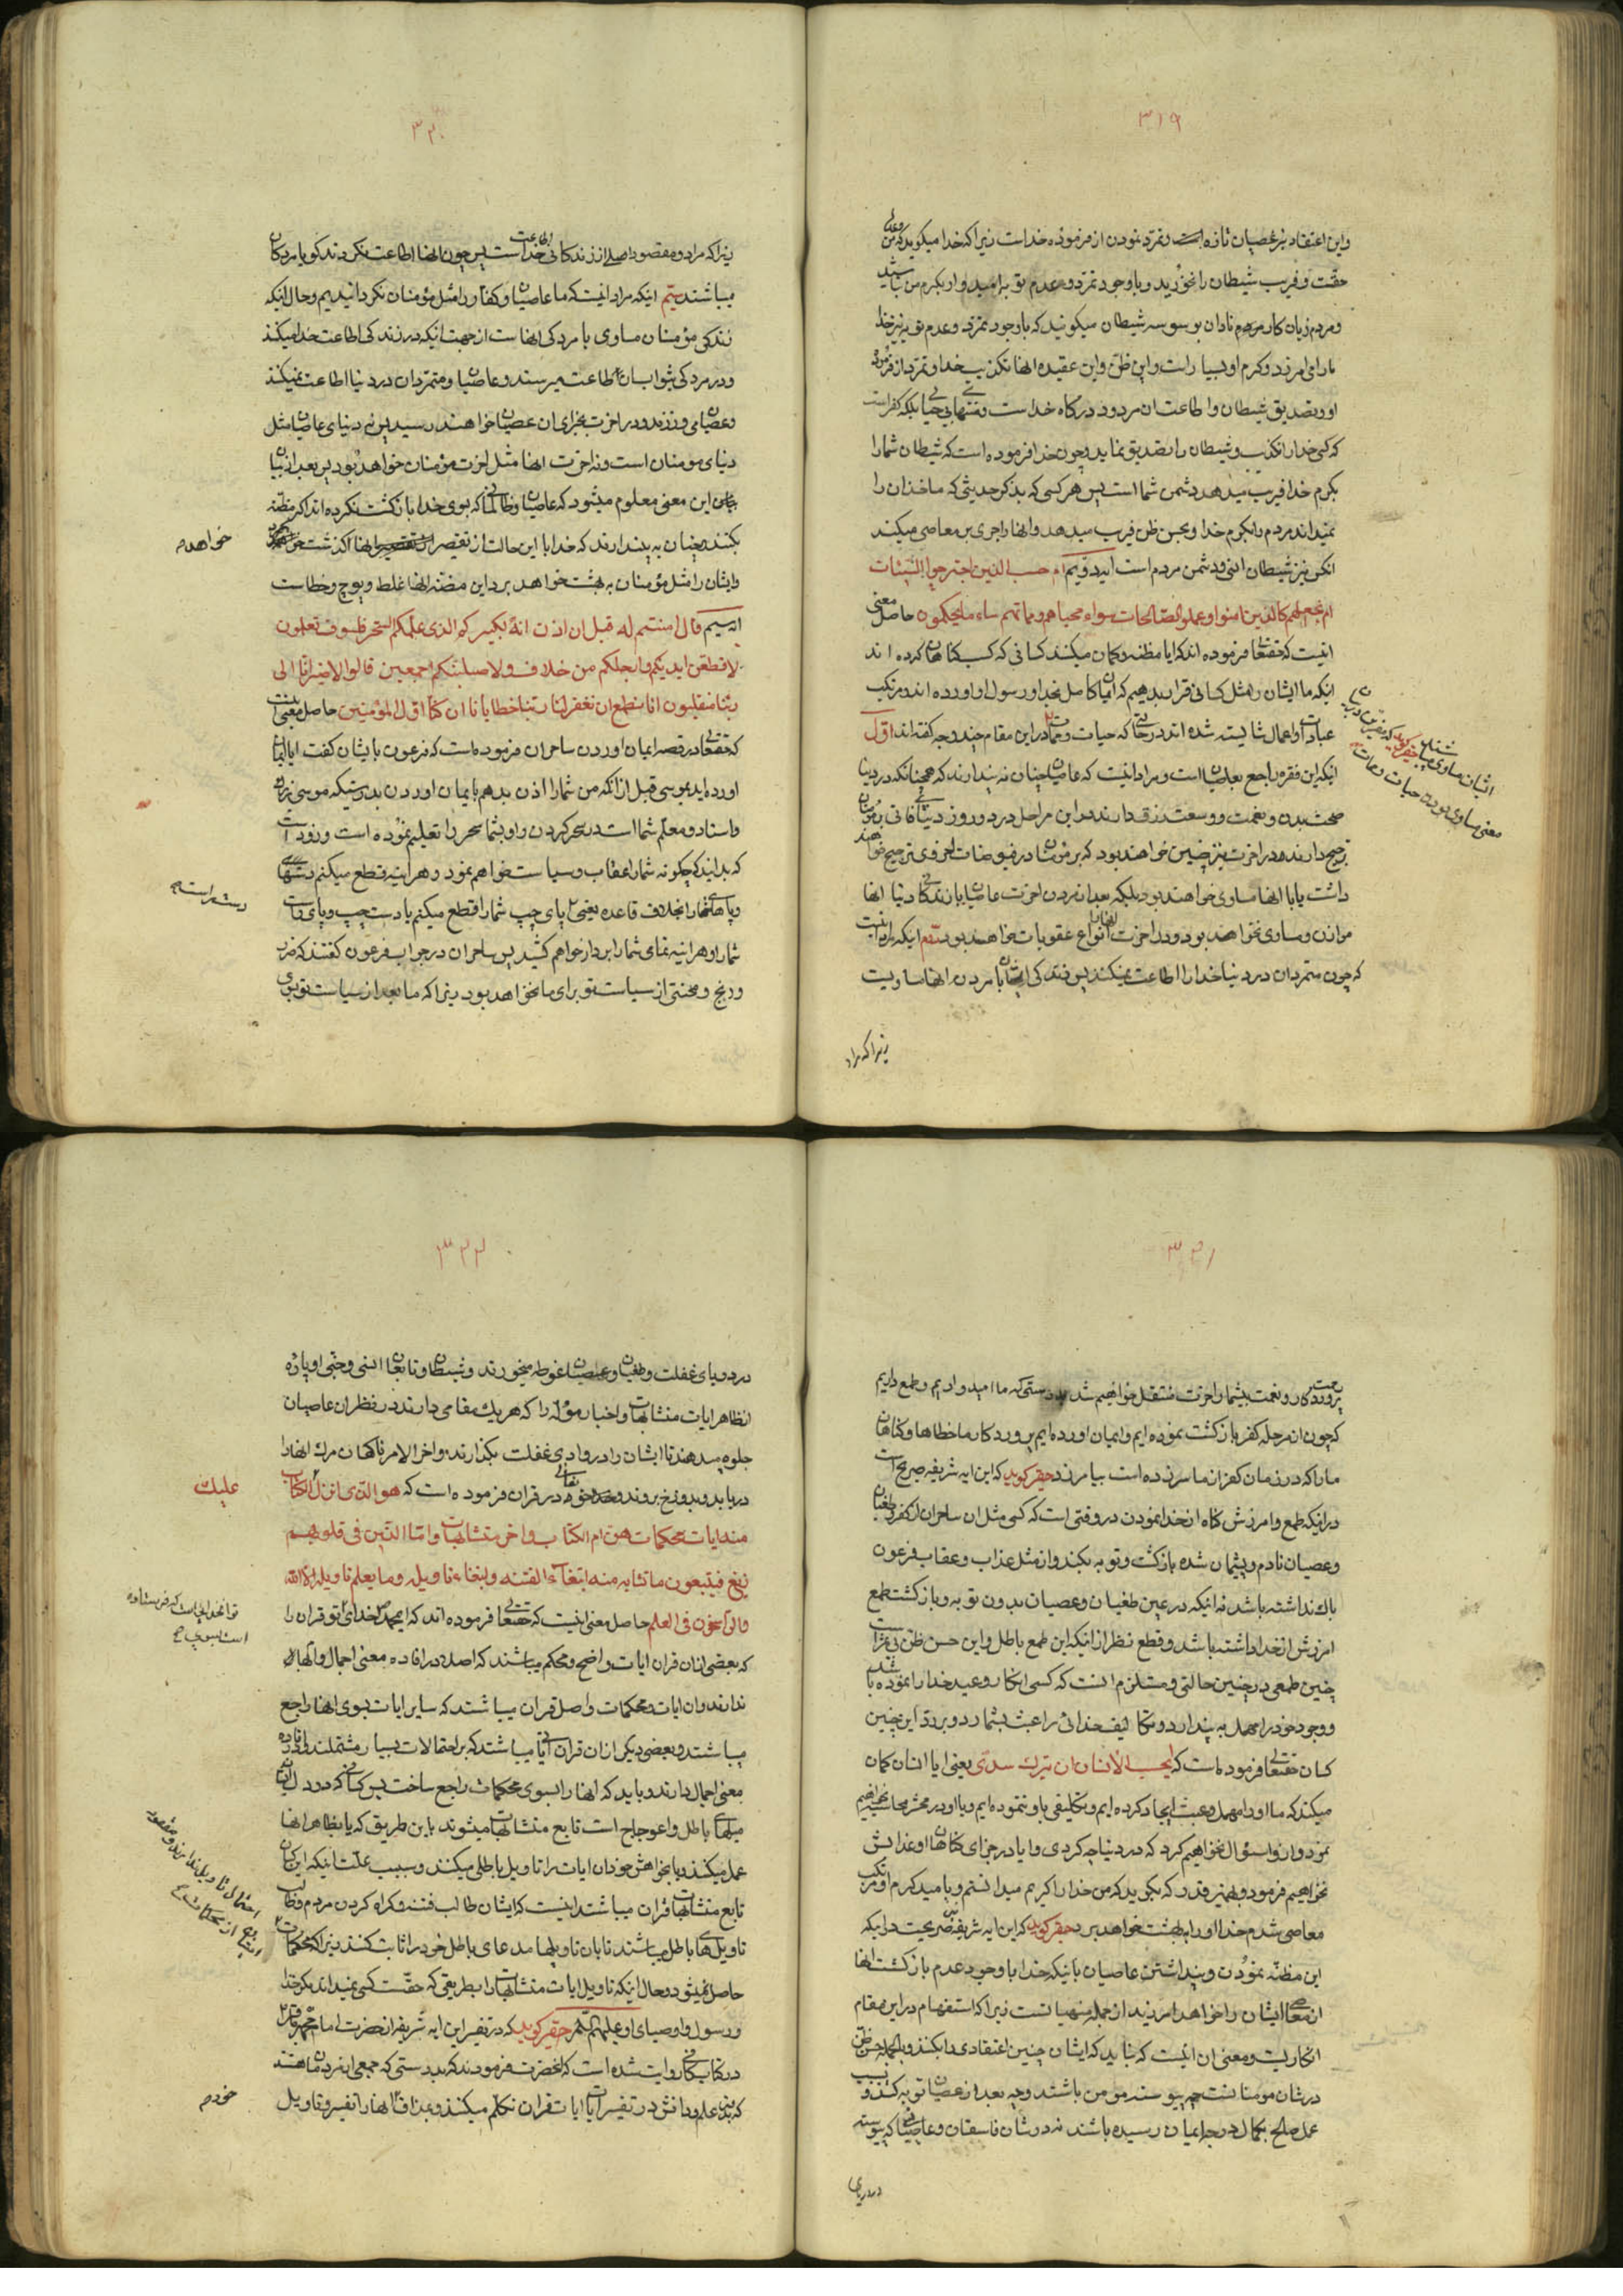 ۳۱۹
واین اعتقاد نیز عصیان تازه است و تمرّد نمودن از فرمودۀ خداست زیرا که خدا میگوید که من
حقست و فریب شیطان را نخورید و با وجود تمرّد و عدم توبه امیدوار بکرم من نباشید
و مردم زیان کار مردم نادان بوسوسه شیطان میکویند که باوجود تمرّد و عدم توبه نیز خدا
مارا می امرزد و کرم او بسیار است و این ظنّ و این عقیده انها تکذیب خدا و تمرّد از فرموده
او و تصدیق شیطان و اطاعت ان مردود درکاه خداست و منتهای بی حیایی بلکه کفر است
که کسی خدا را تکذیب و شیطان را تصدیق نماید و چون خدا فرموده است که شیطان شما را
بکرم خدا فریب میدهد و دشمن شما است پس هر کسی که بذکر حدیثی که ماخذ ان را
نمیداند مردم را بکرم خدا و بحسن ظن فریب میدهد و انها را جری بر معاصی میکند
انکس نیز شیطان انسی و دشمن مردم است ایه دویم ام حسب الذین اجترحوا السّیئات
ان نجعلهم کالذین امنوا و عملوا الصّالحات سواء محیاهم و مماتهم ساء ما یحکمون حاصل معنی
اینست که حقتعالی فرموده اند که ایا مظنه و کمان میکنند کسانی که کسب کناهان کرده اند
اینکه ما ایشان را مثل کسانی قرار بدهیم که ایمان کامل بخدا و رسول او اورده اند و مرتکب
عبادات و اعمال شایسته شده اند در حالتی که حیات و ممات در این مقام چند وجه کفته اند اوّل
اینکه این فقره راجع بعاصیان است و مراد اینست که عاصیان چنان نه پندارند که همچنانکه در دنیا
صحت بدن و نعمت و وسعت رزق دارند و در این مراحل در دو روز دنیای فانی بر مؤمنان
ترجیح دارند در اخرت نیز چنین خواهند بود که بر مؤمنان در فیوضات اخروی ترجیح خواهند
داشت یا با انها مساوی خواهند بود بلکه بعد از مردن اخرت عاصیان با زندکانی دنیا انها
موازن و مساوی نخواهد بود و در اخرت بانواع عقوبات خواهند بود دویّم اینکه مراد اینست
که چون متمردان در دنیا خدا را اطاعت نمیکنند پس زندکی ایشان با مردن انها مساویست
زیرا که مراد
۳۲۰
زیرا که مراد و مقصود اصلی از زندکانی اطاعت خداست پس چون انها اطاعت نکردند کویا مردکان
میباشند سیّم اینکه مراد اینست که ما عاصیان و کفار را مثل مؤمنان نکردانیدیم و حال اینکه
زندکی مؤمنان مساوی با مردکی انهاست از جهت اینکه در زندکی اطاعت خدا میکنند
و در مردکی بثواب ان اطاعت میرسند و عاصیان و متمردان در دنیا اطاعت نمیکنند
و عصیان می ورزند و در اخرت بجزای ان عصیان خواهند رسید پس نه دنیای عاصیان مثل
دنیای مومنان است و نه اخرت انها مثل اخرت مؤمنان خواهد بود پس بعد از بیان
این معنی معلوم میشود که عاصیان و ظالمان که بسوی خدا بازکشت نکرده اند اکر مظنه
بکنند چنان به پندارند که خدا با این حالت از تقصیرات انها کذشت خواهد کرد
خواهد م
و ایشان را مثل مؤمنان به بهشت خواهد برد این مظنّه انها غلط و پوچ و خطاست
ایه سیم قال امنتم له قبل ان اذن انّه لکبیرکم الذی علّمکم السّحر فلسوف تعلمون
لاقطّعن ایدیکم و ارجلکم من خلاف و لاصلبنّکم اجمعین قالوا لاضیر انّا الی
ربّنا منقلبون انا نطمع ان تغفر لنا ربّنا خطایانا ان کنّا اوّل المؤمنین حاصل معنی اینست
که حقتعالی در قصه ایمان اوردن ساحران فرموده است که فرعون بایشان کفت ایا ایمان
اورده اید بموسی قبل از انکه من شما را اذن بدهم بایمان اوردن بدرستیکه موسی بزرک
و استاد و معلّم شما است در سحر کردن و او بشما سحر را تعلیم نموده است و زود است
که بدانید که چکونه شما را عقاب و سیاست خواهم نمود و هراینه قطع میکنم دستهای
و پاهای شما را بخلاف قاعده یعنی پای چپ شما را قطع میکنم یا دست چپ و پای راست
دست راست م
شما را و هراینه تمامی شما را بر دار خواهم کشید پس ساحران در جواب فرعون کفتند که ضرر
و رنج و محنتی از سیاست تو برای ما نخواهد بود زیرا که ما بعد از سیاست تو بسوی
۳۲۱
پروردکار و نعمت بیشمار اخرت منتقل خواهیم شد بدرستی که ما امیدواریم و طمع داریم
که چون از مرحله کفر بازکشت نموده ایم و ایمان اورده ایم پروردکار ما خطاها و کناهان
مارا که در زمان کفر از ما سر زده است بیامرزد حقیر کوید که این ایه شریفه صریح است
در اینکه طمع و امرزش کناه از خدا نمودن در وقتی است که کسی مثل ان ساحران از کفر و طغیان
و عصیان نادم و پشیمان شده بازکشت و توبه بکند و از مثل عذاب و عقاب فرعون
باک نداشته باشد نه اینکه در عین طغیان و عصیان بدون توبه و بازکشت طمع
امرزش از خدا داشته باشد و قطع نظر از اینکه این طمع باطل و این حسن ظن بی مزا است
چنین طمعی در چنین حالتی مستلزم انست که کسی انکار وعید خدا را نموده باشد
و وجود خود را مهمل به پندارد و تکالیف خدائی را عبث بشمارد و بر ردّ این چنین
کسان حقتعالی فرموده است که ایحسب الانسان ان یترک سدی یعنی ایا انسان کمان
میکند که ما او را مهمل و عبث ایجاد کرده ایم و تکلیفی باو ننموده ایم و یا او در محشر محاسبه نخواهیم
نمود و از او سؤال نخواهیم کرد که در دنیا چه کردی و ایا در جزای کناهان او عذابش
نخواهیم فرمود و بهمین قدر که بکوید که من خدا را کریم میدانستم و بامید کرم او مرتکب
معاصی شدم خدا او را به بهشت خواهد برد حقیر کوید که این ایه شریفه صریحست در اینکه
این مظنّه نمودن و پنداشتن عاصیان باینکه خدا با وجود عدم بازکشت انها
از معاصی ایشان را خواهد امرزید از جمله منهیاتست زیرا که استفهام در این مقام
انکاریست و معنی ان اینست که نباید که ایشان چنین اعتقادی را بکنند و بالجمله حسن ظن
در شان مومنانست چه پیوسته مومن باشند و چه بعد از عصیان توبه کنند و بسبب
عمل صالح بکمال درجه ایمان رسیده باشند نه در شان فاسقان و عاصیان که پیوسته
در دریای
۳۲۲
در دریای غفلت و طغیان و عصیان غوطه میخورند و شیطان و تابعان انسی و جنّی او پارۀ
از ظاهر ایات متشابهات و اخبار مؤله را که هر یک مقامی دارند در نظر ان عاصیان
جلوه میدهند تا ایشان را در وادی غفلت بکذارند و اخر الامر ناکهان مرک انها را
دریابد و بدوزخ بروند و خدای تعالی در قران فرموده است که هو الّذی انزل الکتاب
علیک
منه ایات محکمات هنّ امّ الکتاب و اخر متشابهات و امّا الذین فی قلوبهم
زیغ فیتبعون ما تشابه منه ابتغآء الفتنه و ابتغاء تاویله و ما یعلم تاویله الّا الله
والرّاسخون فی العلم حاصل معنی اینست که حقتعالی فرموده اند که ای محمد خدای تو قران را
که بعضی از ان قران ایات واضح و محکم میباشند که اصلا در افاده معنی اجمال و ابهام
ندارند و ان ایات محکمات و اصل قران میباشند که سایر ایات بسوی انها راجع
میباشند و بعضی دیکر از ان قران ایاتی میباشند که بر احتمالات بسیار مشتملند و در افاده
معنی اجمال دارند و باید که انها را بسوی محکمات راجع ساخت پس کسانی که در دل ایشان
میلهای باطل و اعوجاج است تابع متشابهات میشوند باین طریق که یا بظاهر انها
عمل میکنند و یا بخواهش خود ان ایات را تاویل باطلی میکنند و سبب علّت اینکه این کسان
تابع متشابهات قران میباشند اینست که ایشان طالب فتنه و کمراه کردن مردم و طالب
تاویل های باطل میباشند تا بان تاویلها مدعای باطل خود را ثابت کنند زیرا که محکمات
حاصل نمیشود و حال اینکه تاویل ایات متشابهات را بطریقی که حقّست کسی نمیداند مکر خدا
و رسول و اوصیای او علیهم السّلام حقیر کوید که در تفسیر این ایه شریفه از حضرت امام محمد باقر
در کتاب کافی روایت شده است که انحضرت فرمودند که بدرستی که جمعی از مردمان هستند
که بدون علم و دانش در تفسیر ایات قران تکلّم میکنند و بمذاق انها را تفسیر و تاویل
خود م